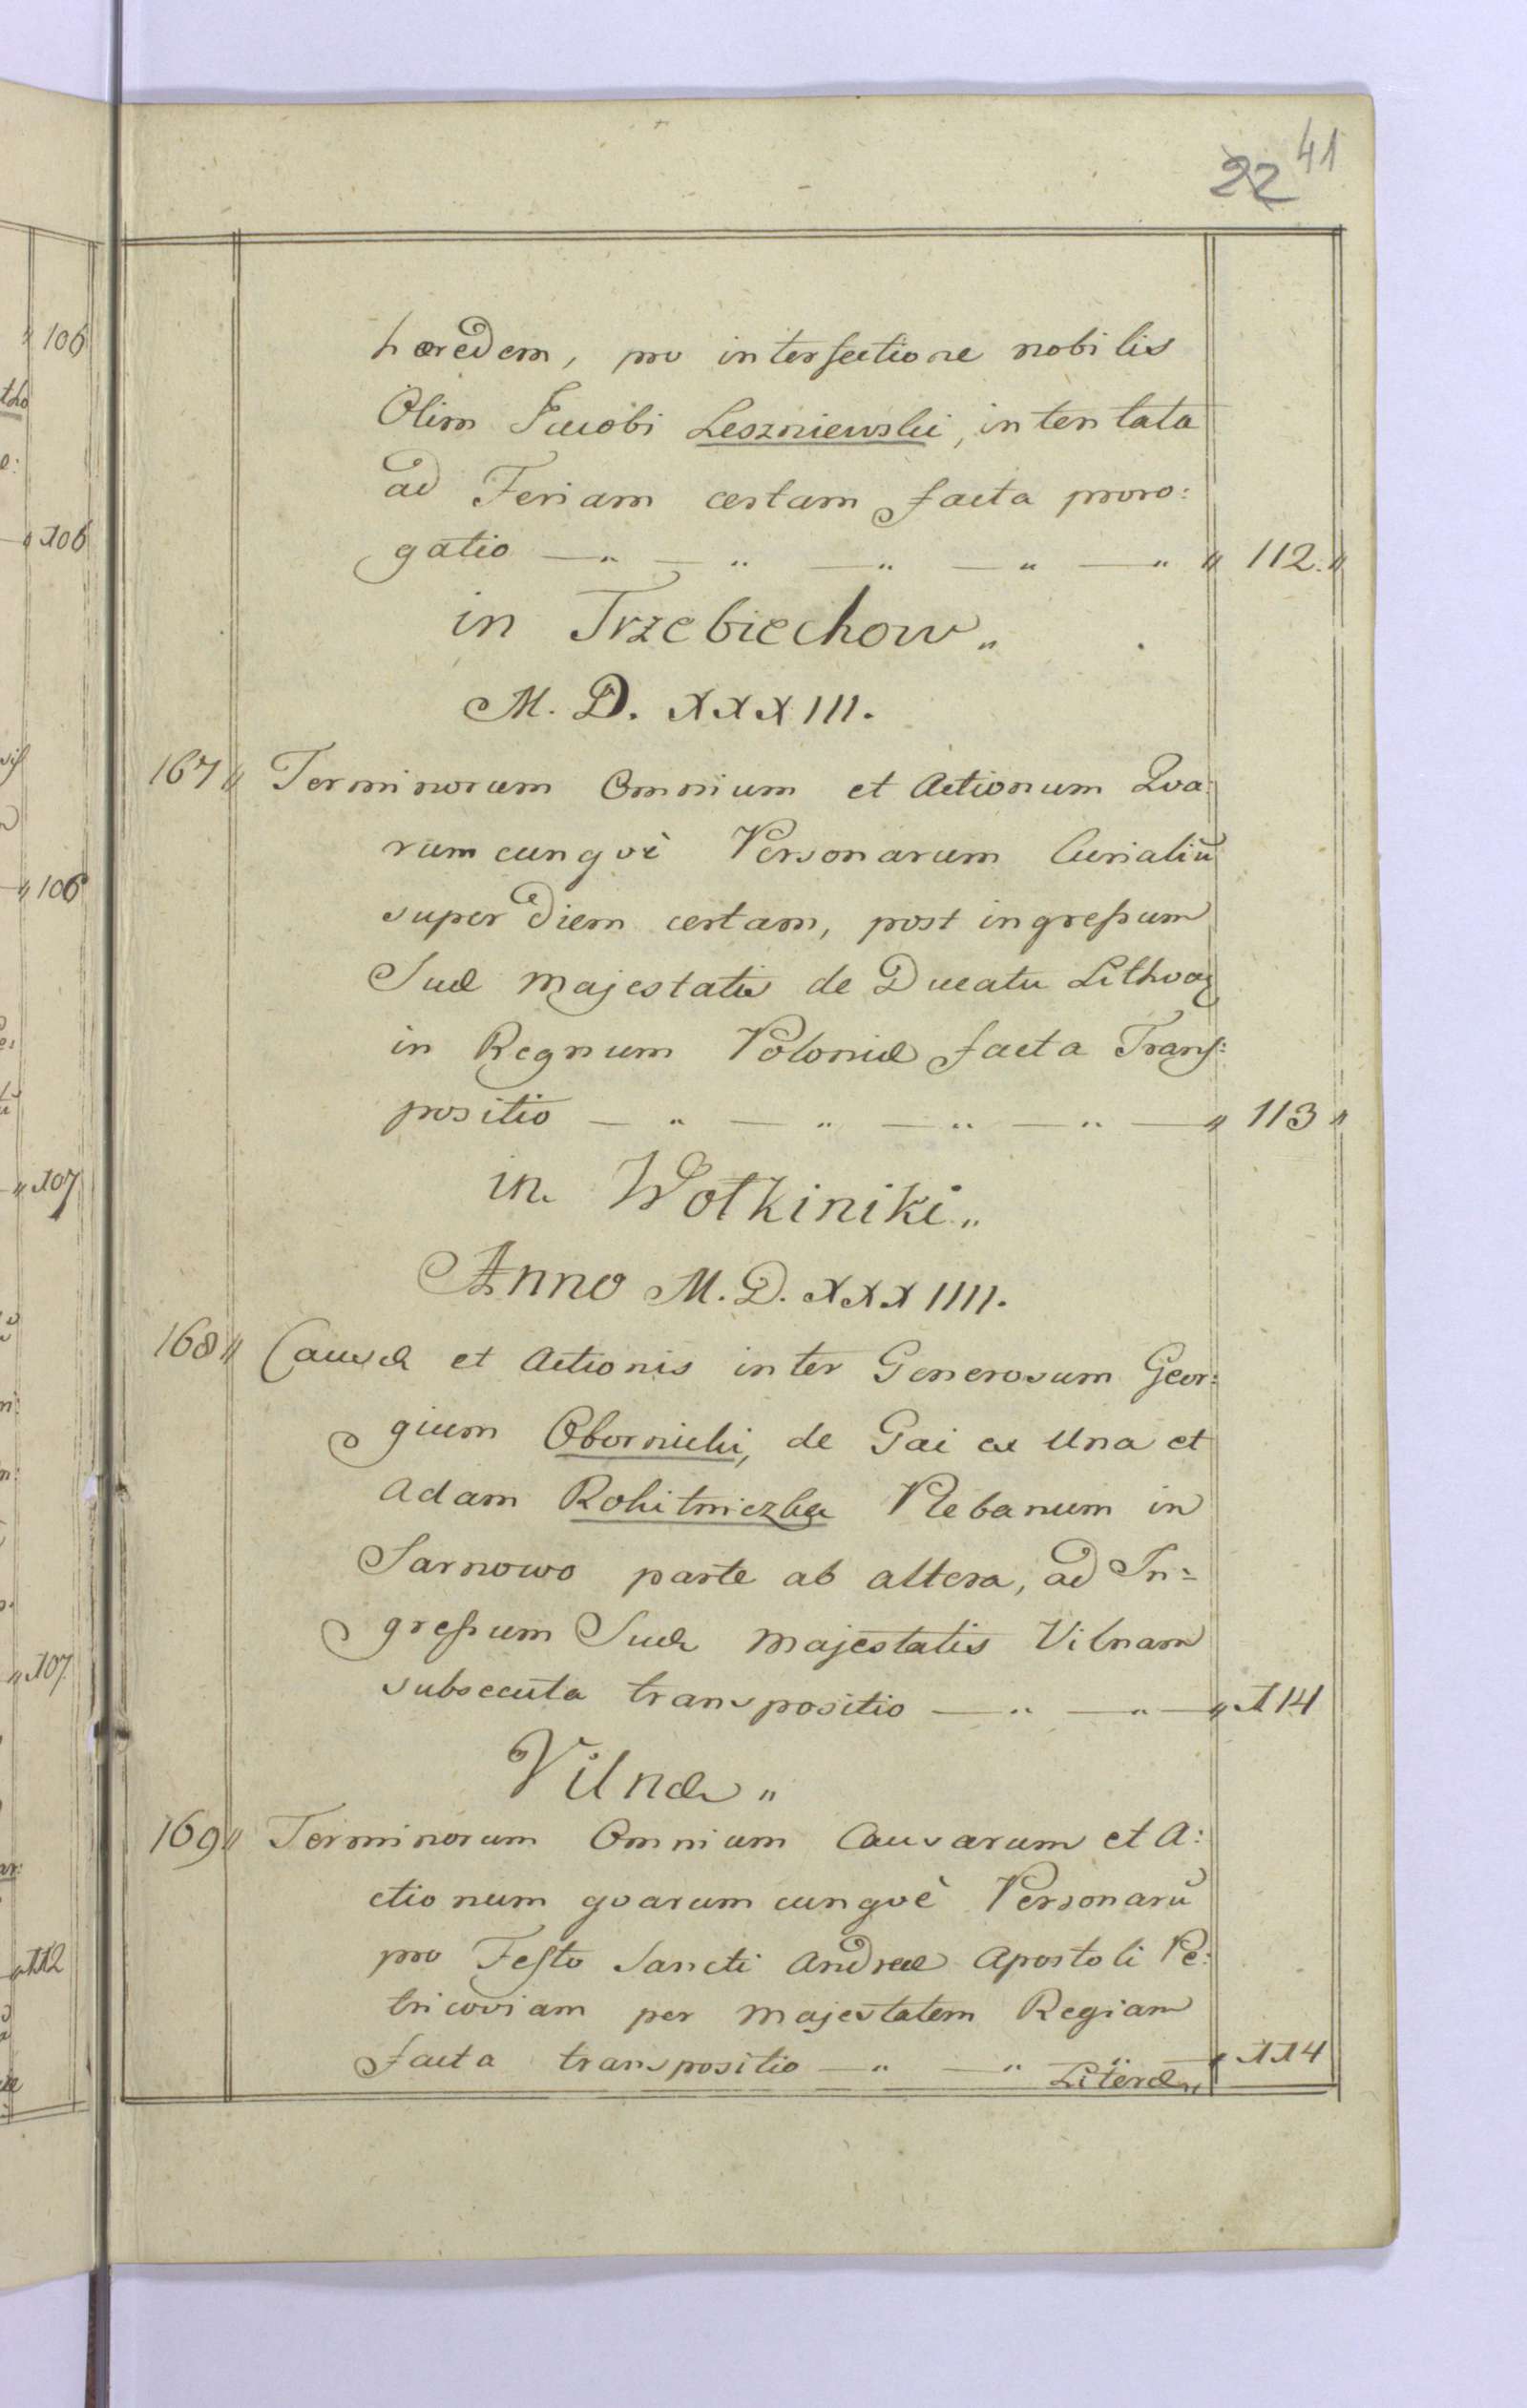 41
22
hæredem, pro interfectione nobilis
Olim Jacobi Leszniewski, intentata
ad Feriam certam facta proro:
gatio — „ — „ — „ — „ — „ „ 112. „
in Trzebiechow „
M. D. XXXIII.
167 „ Terminorum Omnium et Actionum Qva:
rumcunqvè Personarum Curialiū
super Diem certam, post ingreſsum
Suæ Majestatis de Ducatu Lithvaæ
in Regnum Poloniæ facta Tranſ:
positio — „ — „ — „ — „ — „ 113 „
in Wołkiniki „
Anno M. D. XXXIIII.
168 „ Causæ et Actionis inter Generosum Geor:
gium Obornicki, de Gai ex Una et
Adam Rokitniczka Plebanum in
Sarnowo parte ab altera, ad In=
greſsum Suæ Majestatis Vilnam
subsecuta transpositio — „ — „ — „ 114
Vilnæ „
169 „ Terminorum Omnium Causarum et A:
ctionum qvarumcunqvè Personarū
pro Feſto Sancti Andreæ Apostoli Pe:
tricoviam per Majestatem Regiam
facta transpositio — „ — „ „ — „ 114
Literæ „
106
106
106
107
107
112